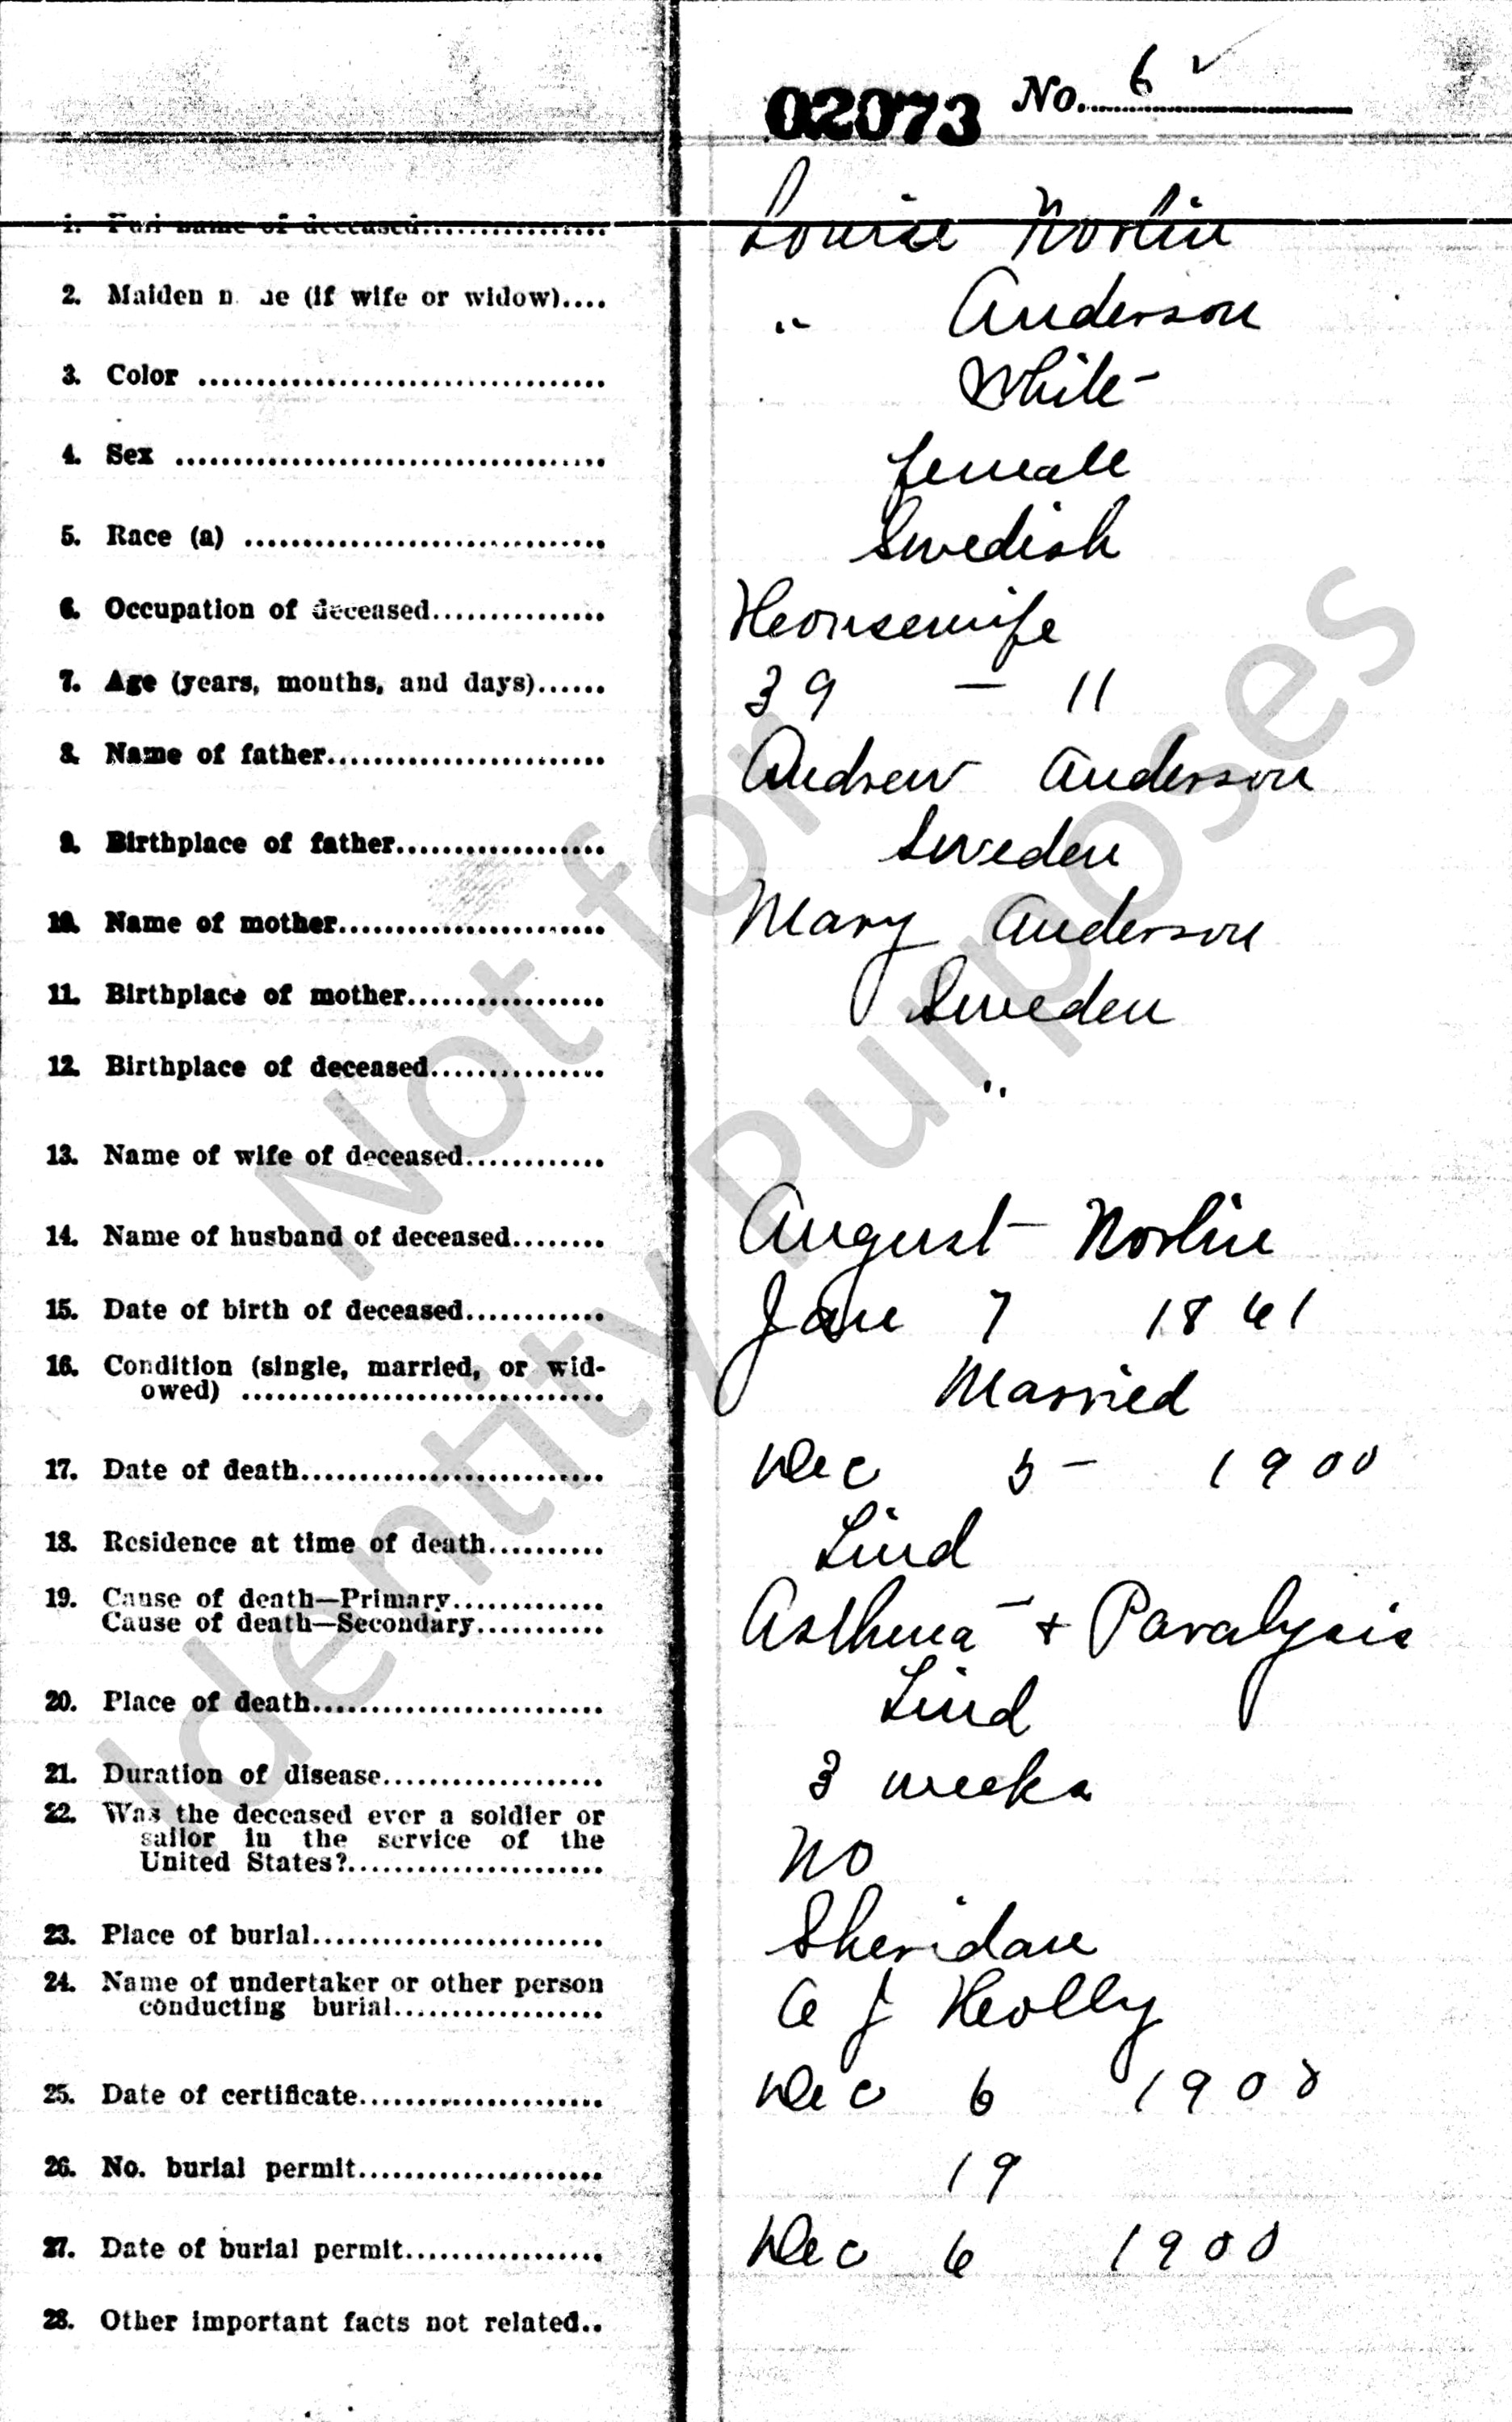 02073 No. 6 ✓
1. Full name of deceased................ Louise Norlin
2. Maiden n  ne (if wife or widow).... " Anderson
3. Color ................................... White
4. Sex ..................................... female
5. Race (a) ............................... Swedish
6. Occupation of deceased............... Housewife
7. Age (years, months, and days)...... 39 — 11
8. Name of father........................ Andrew Anderson
9. Birthplace of father.................. Sweden
10. Name of mother....................... Mary Anderson
11. Birthplace of mother................. Sweden
12. Birthplace of deceased............... "
13. Name of wife of deceased............
14. Name of husband of deceased........ August Norlin
15. Date of birth of deceased............ Jan 7 1861
16. Condition (single, married, or wid-
owed) ............................... Married
17. Date of death.......................... Dec 5 - 1900
18. Residence at time of death.......... Lind
19. Cause of death—Primary.............
Cause of death—Secondary........... Asthma + Paralysis
20. Place of death......................... Lind
21. Duration of disease................... 3 weeks
22. Was the deceased ever a soldier or
sailor in the service of the
United States?...................... No
23. Place of burial......................... Sheridan
24. Name of undertaker or other person
conducting burial.................. A J Holly
25. Date of certificate..................... Dec 6 1900
26. No. burial permit..................... 19
27. Date of burial permit................. Dec 6 1900
28. Other important facts not related..
Not for
Identity Purposes